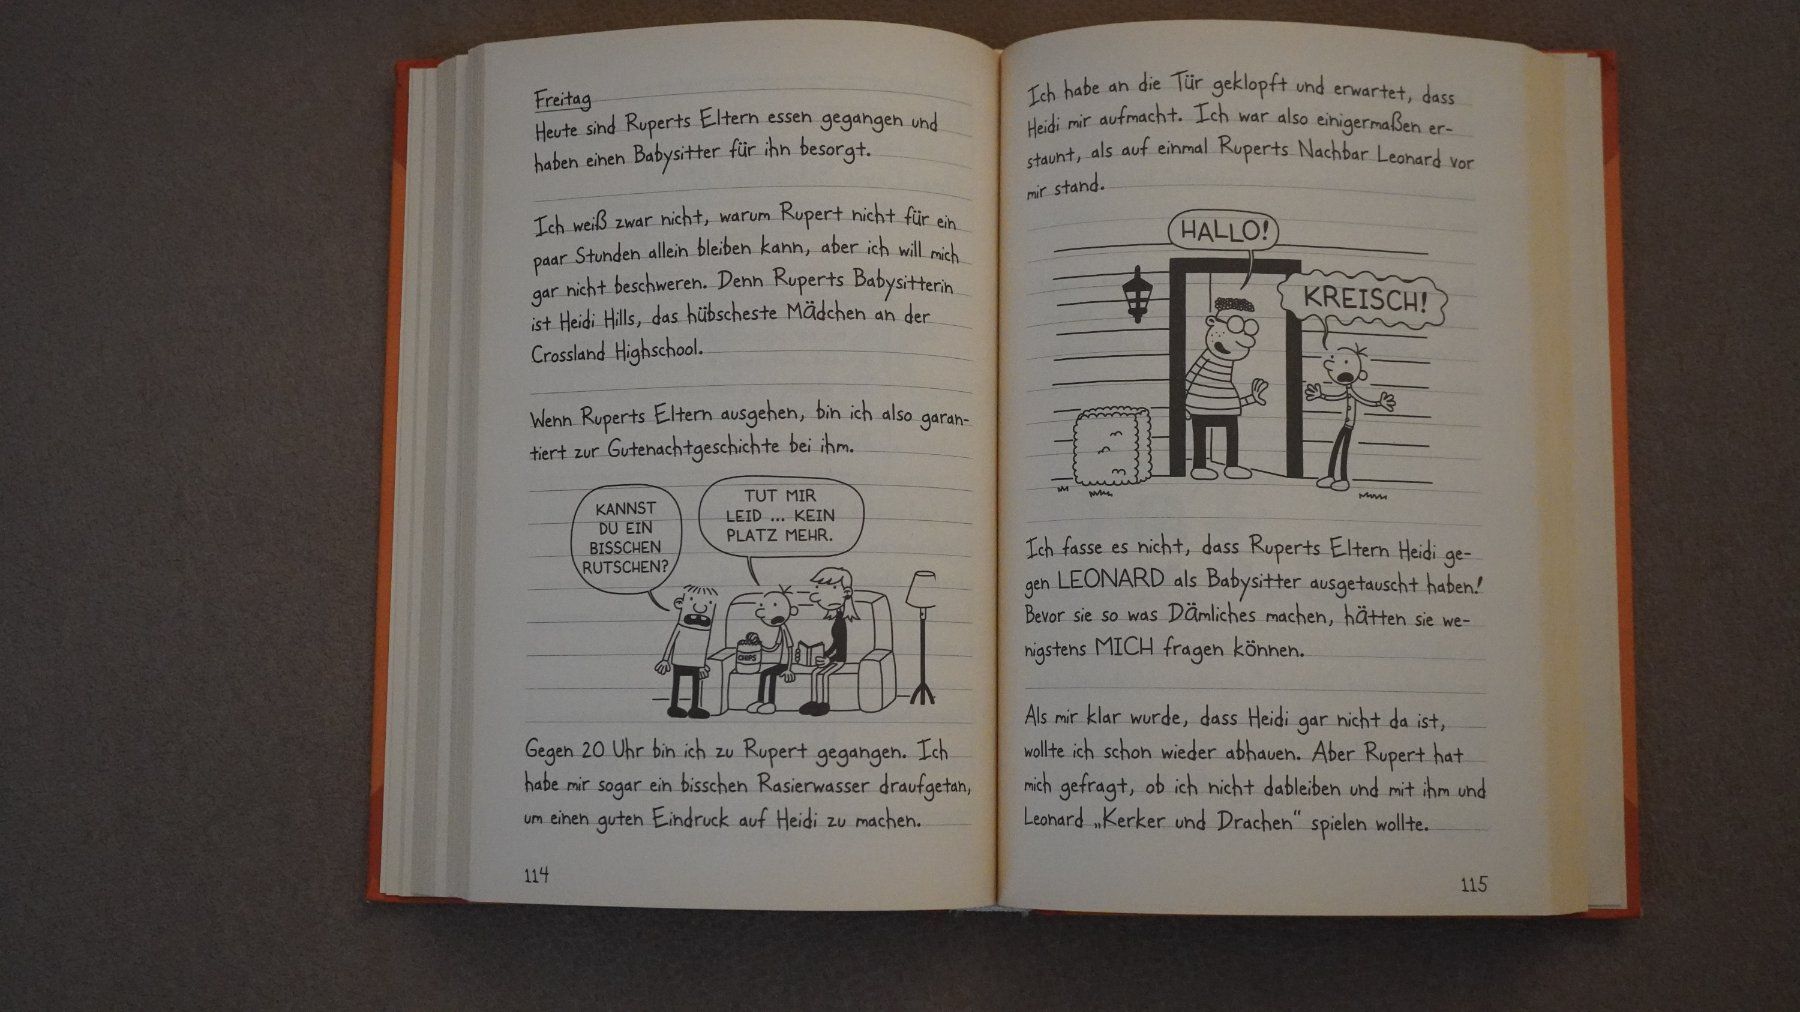 Freitag
Heute sind Ruperts Eltern essen gegangen und
haben einen Babysitter für ihn besorgt.
Ich weiß zwar nicht, warum Rupert nicht für ein
paar Stunden allein bleiben kann, aber ich will mich
gar nicht beschweren. Denn Ruperts Babysitterin
ist Heidi Hills, das hübscheste Mädchen an der
Crossland Highschool.
Wenn Ruperts Eltern ausgehen, bin ich also garan-
tiert zur Gutenachtgeschichte bei ihm.
KANNST
DU EIN
BISSCHEN
RUTSCHEN?
TUT MIR
LEID ... KEIN
PLATZ MEHR.
CHIPS
Gegen 20 Uhr bin ich zu Rupert gegangen. Ich
habe mir sogar ein bisschen Rasierwasser draufgetan,
um einen guten Eindruck auf Heidi zu machen.
114
Ich habe an die Tür geklopft und erwartet, dass
Heidi mir aufmacht. Ich war also einigermaßen er-
staunt, als auf einmal Ruperts Nachbar Leonard vor
mir stand.
HALLO!
KREISCH!
Ich fasse es nicht, dass Ruperts Eltern Heidi ge-
gen LEONARD als Babysitter ausgetauscht haben!
Bevor sie so was Dämliches machen, hätten sie we-
nigstens MICH fragen können.
Als mir klar wurde, dass Heidi gar nicht da ist,
wollte ich schon wieder abhauen. Aber Rupert hat
mich gefragt, ob ich nicht dableiben und mit ihm und
Leonard „Kerker und Drachen" spielen wollte.
115